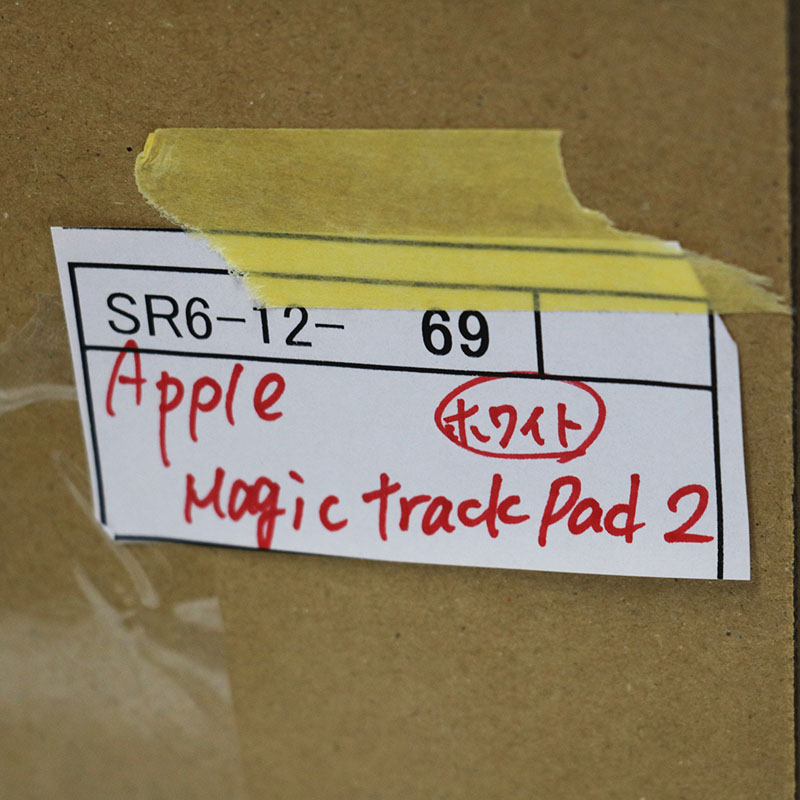 SR6-12- 69
Apple ホワイト
Magic track Pad 2